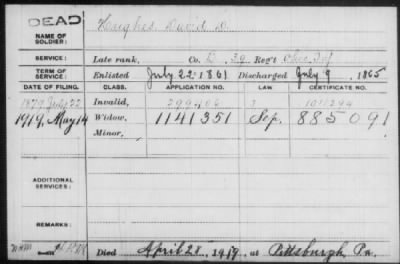 DEAD
NAME OF SOLDIER: Hughes David D.
SERVICE: Late rank, Co. D, 39 Reg't Ohio Inf
TERM OF SERVICE: Enlisted July 22 1861 Discharged July 9, 1865
DATE OF FILING. CLASS. APPLICATION NO. LAW CERTIFICATE NO.
1879 July 22 Invalid,
1919, May 14 Widow, 1141351 Sep. 885091
Minor,
ADDITIONAL SERVICES:
REMARKS:
Died April 28, 1919, at Pittsburgh, Pa.